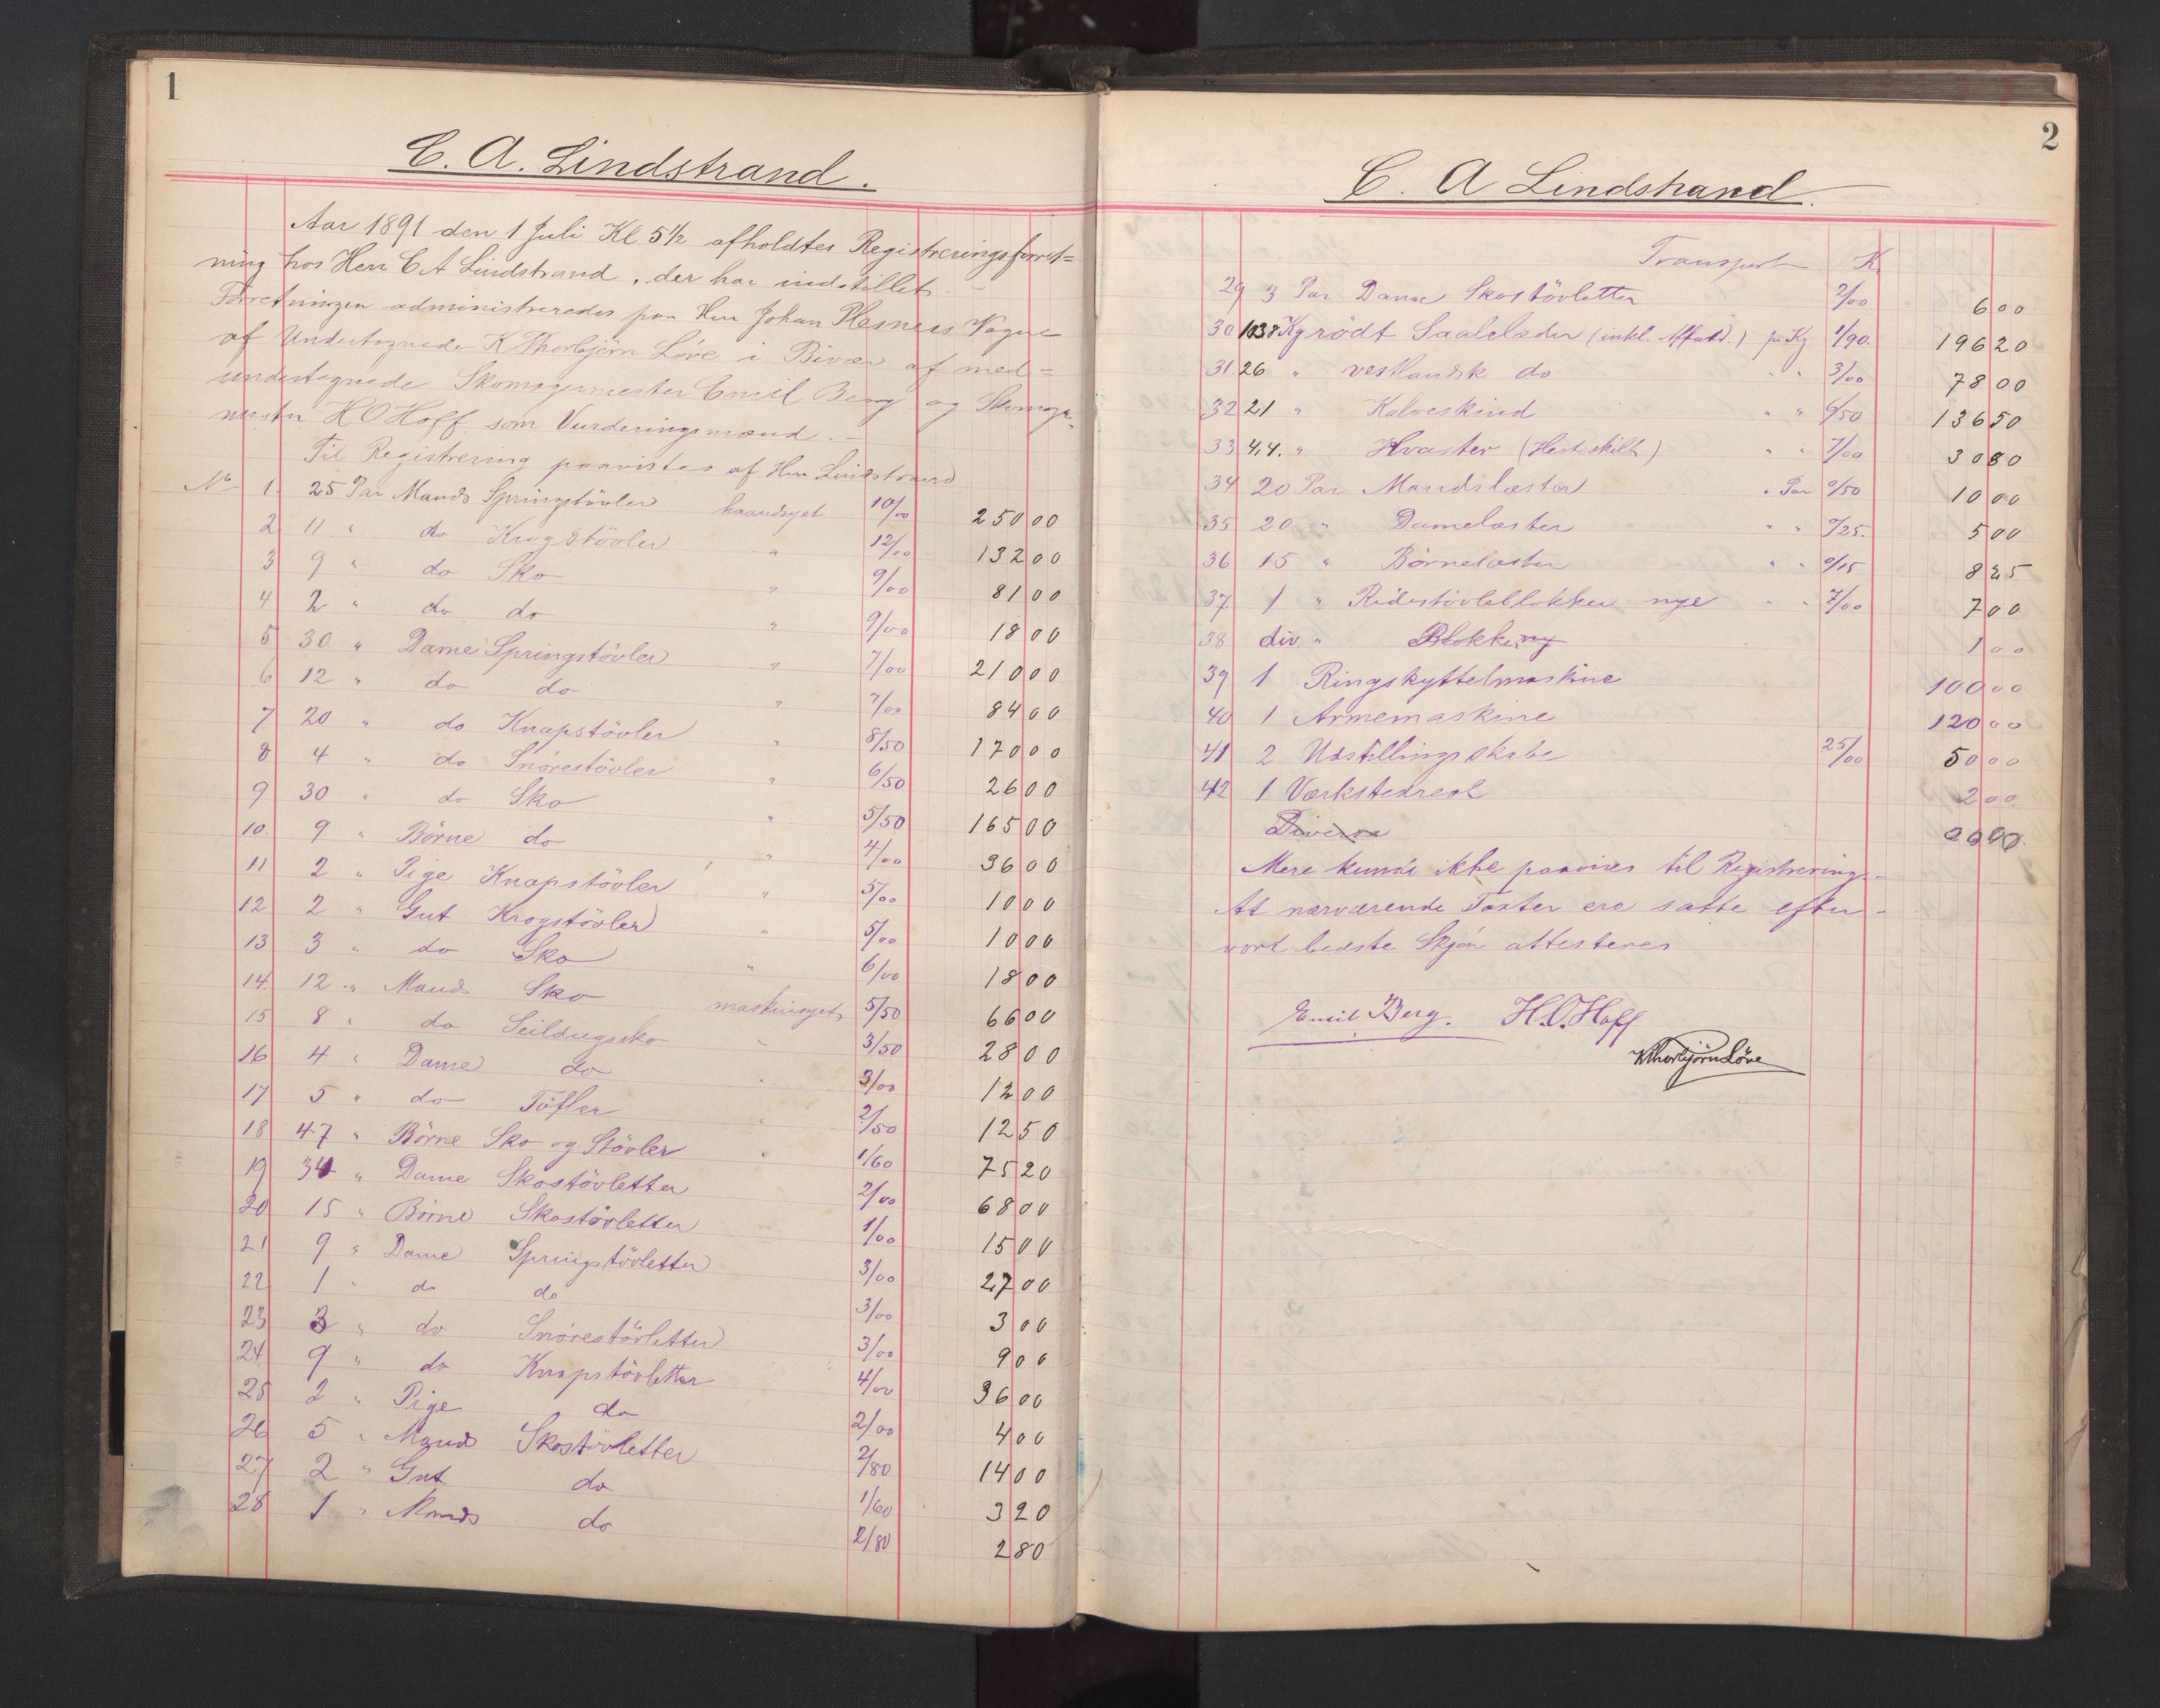 1
C. A. Lindstrand.
Aar 1891 den 1 Juli Kl 5½ afholdtes Registreringsforret=
ning hos Herr C A Lindstrand, der har indstillet.
Forretningen administreredes paa Herr Johan Plesners Vegne
af Undertegnede K Thorbjörn Löve i Bivær af med=
undertegnede Skomagermester Emil Berg og Skomager
mester H O Hoff som Vurderingsmænd.
Til Registrering paavistes af Herr Lindstrand
No 1. 25 Par Mands Springstövler haandsyet 10/00 250 00
2 11 " do Krogstövler " 12/00 132 00
3 9 " do Sko " 9/00 81 00
4 2 " do do " 9/00 18 00
5 30 " Dame Springstövler " 7/00 210 00
6 12 " do do " 7/00 84 00
7 20 " do Knapstövler " 8/50 170 00
8 4 " do Snörestövler " 6/50 26 00
9 30 " do Sko " 5/50 165 00
10 9 " Börne do " 4/00 36 00
11 2 " Pige Knapstövler " 5/00 10 00
12 2 " Gut Krogstövler " 5/00 10 00
13 3 " do Sko " 6/00 18 00
14. 12 " Mands Sko maskinsyet 5/50 66 00
15 8 " do Seildugssko " 3/50 28 00
16 4 " Dame do " 3/00 12 00
17 5 " do Töfler " 2/50 12 50
18 47 " Börne Sko og Stövler " 1/60 75 20
19 34 " Dame Skostövletter 2/00 68 00
20 15 " Börne Skostövletter 1/00 15 00
21 9 " Dame Springstövletter 3/00 27 00
22 1 " do do 3/00 3 00
23 3 " do Snörestövletter 3/00 9 00
24 9 " do Knapstövletter 4/00 36 00
25 2 " Pige do 2/00 4 00
26 5 " Mands Skostövletter 2/80 14 00
27 2 " Gut do 1/60 3 20
28 1 " Mands do 2/80 2 80
2
C. A Lindstrand.
Transport K.
29 3 Par Dame Skostövletter 2/00 6 00
30 103 8 Kg rödt Saalelæder (inkl. Affald.) pr Kg 1/90. 196 20
31. 26 " vestlandsk do " " 3/00 78 00
32 21 " Kalveskind " " 6/50 136 50
33 4,4. " Hvaster (Hestskilt) " " 7/00 30 80
34 20 Par Mandslæster " Par 0/50 10 00
35 20 " Damelæster " " 0/25. 5 00
36 15 " Börnelæster " " 0/15 8 25
37 1 " Ridestövleblokker nye " " 7/00 7 00
38 div. " Blokker 1 00
39 1 Ringskyttelmaskine 100 00
40 1 Armemaskine 120 00
41 2 Udstillingsskabe 25/00 50 00
42 1 Værkstedreol 2 00
Diverse
Mere kunde ikke paavises til Registrering.
At nærværende Taxter ere satte efter
vort bedste Skjön attesteres
Emil Berg. H.O. Hoff
KThorbjörnLöve